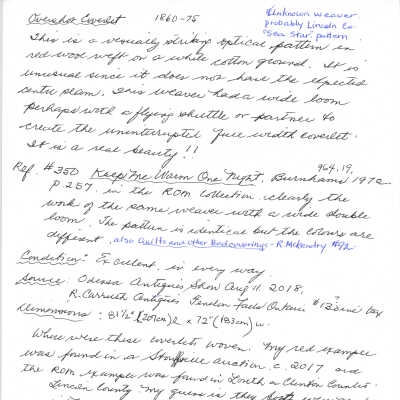 Overshot Coverlet 1860-75
Unknown weaver
probably Lincoln Co
"Sea Star" pattern
This is a visually striking optical pattern in
red wool weft on a white cotton ground. It is
unusual since it does not have the expected
centre seam. This weaver had a wide loom
perhaps with a flying shuttle or partner to
create the uninterrupted full width coverlet.
It is a real beauty!!
964.19.
Ref. #350 Keep Me Warm One Night, Burnhams 1972
p 257. in the ROM collection. clearly the
work of the same weaver with a wide double
loom. The pattern is identical but the colours are
different. also Quilts and other Bedcoverings - R. McKendry #92
Condition: Excellent in every way
Source: Odessa Antiques Show Aug 11 2018.
R. Carruth Antiques Fenelon Falls Ontario tax
Dimensions: 81½" (207cm) l x 72" (183cm) w.
Where were these coverlets woven. My red example
was found in a Stouffville auction c. 2017 and
the ROM example was found in Louth or Clinton Counties
Lincoln County. My guess is they